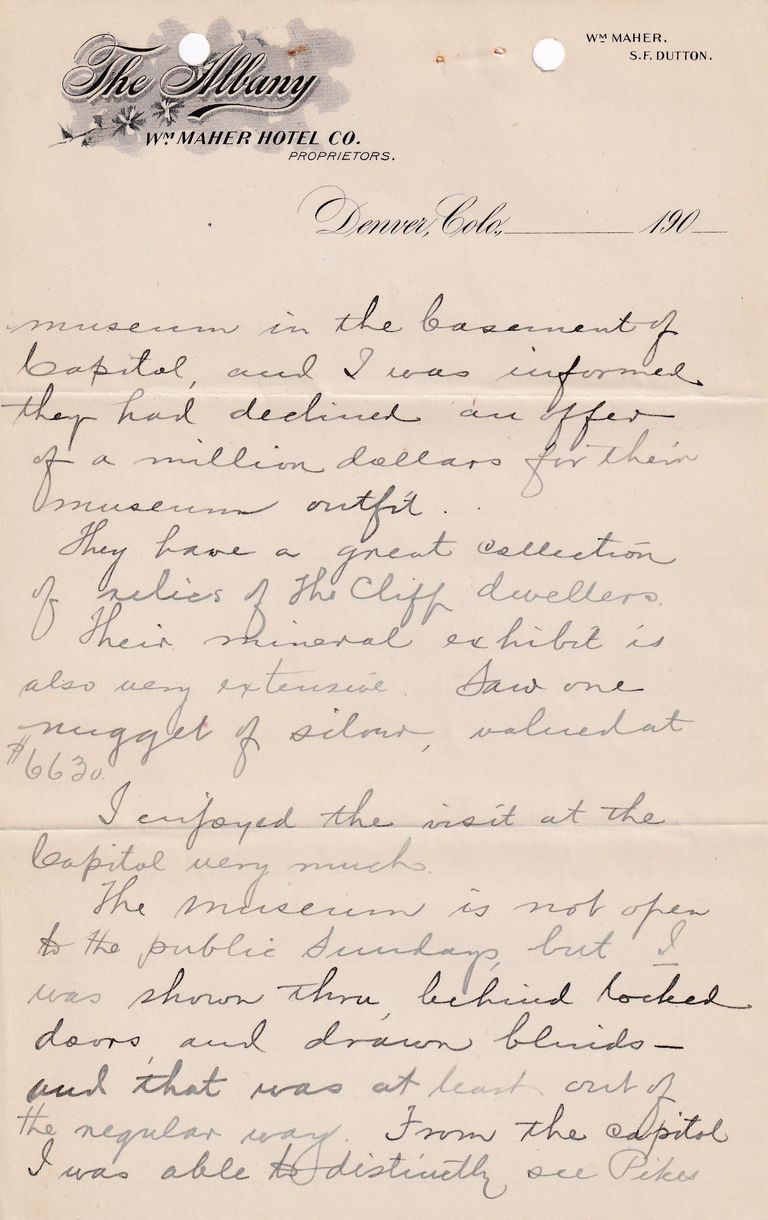 The Albany
Wm MAHER HOTEL CO.
PROPRIETORS.
Wm MAHER.
S.F. DUTTON.
Denver, Colo., 190
museum in the basement of
Capitol, and I was informed
they had declined an offer
of a million dollars for their
museum outfit.
They have a great collection
of relics of the Cliff dwellers.
Their mineral exhibit is
also very extensive. Saw one
nugget of silver, valued at
$6630.
I enjoyed the visit at the
Capitol very much.
The museum is not open
to the public Sundays, but I
was shown thru, behind locked
doors, and drawn blinds—
and that was at least out of
the regular way. From the capitol
I was able to distinctly see Pikes